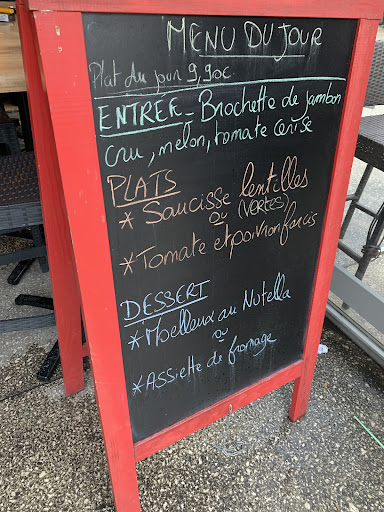 MENU DU JOUR
Plat du jour 9,90€
ENTREE - Brochette de jambon
cru, melon, tomate cerise
PLATS
* Saucisse lentilles
ou (VERTES)
* Tomate et poivron farcis
DESSERT
* Moelleux au Nutella
ou
* Assiette de fromage